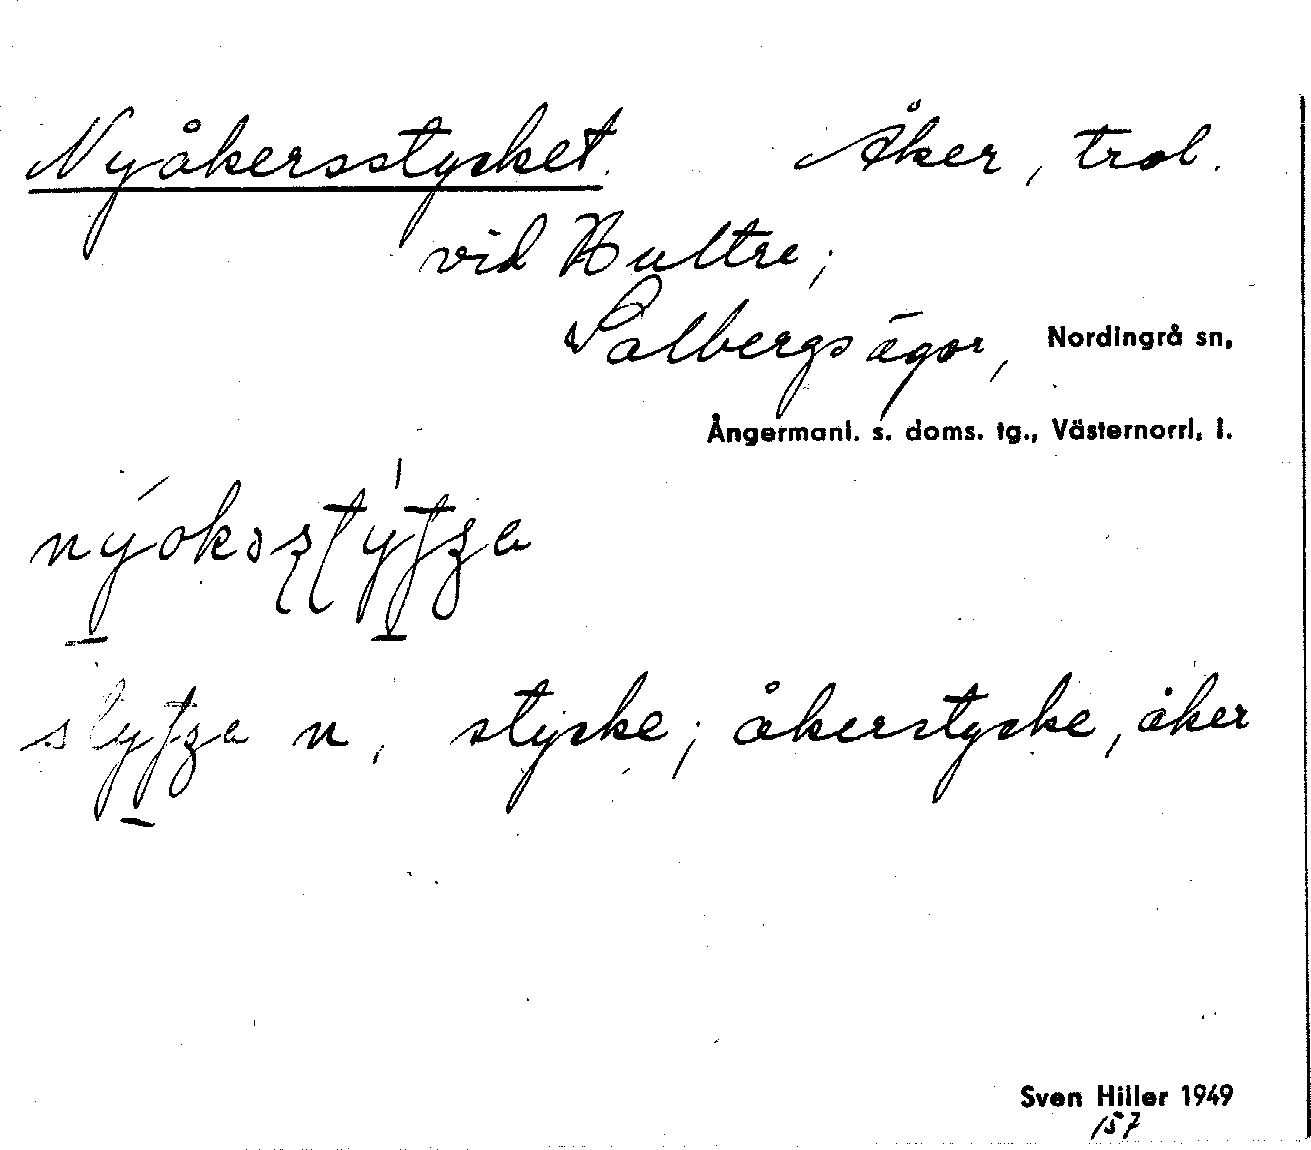 Nyåkersstycket. Åker, trol.
vid Hultre;
Salbergs ägor, Nordingrå sn,
Ångermanl. s. doms. tg., Västernorrl. l.
n, stycke; åkerstycke, åker
Sven Hiller 1949
157